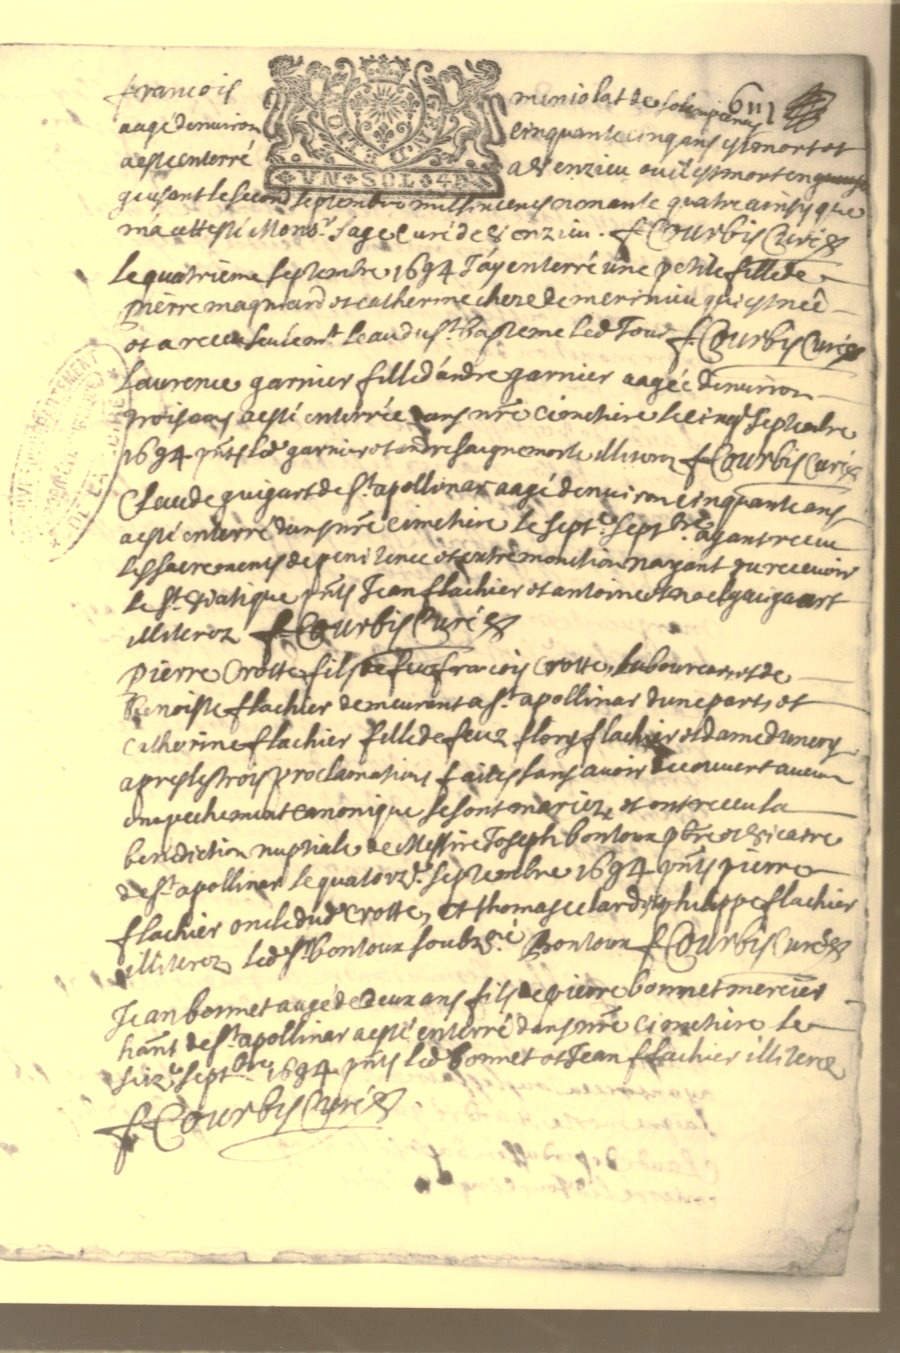 6111
francois miniolat de solempienas
aagé denviron cinquante cinq ans est mort et
a esté enterré a Venzieu ou il est mort en
geusant le second septembre mil six cens nonante quatre ainsy que
m'a attesté Mons.r Sage Curé de Venzieu. f Courbis Curé
GENER. D. LYON
UN SOL 4 D
le quatrieme septembre 1694 J'ay enterré une petite fille de
pierre magniard et catherine cheze de merinieu qui est née
et a receu seulem.t l'eau du S.t bapteme led Jour f Courbis Curé
Laurence garnier fille d'andré garnier aagée denviron
trois ans a esté enterrée dans nr̃e cimetiere le cinq septembre
1694 pñts led garnier et andre saignemorte illiterez f Courbis Curé
Claude guigart de S.t apollinar aagé denviron cinquante ans
a esté enterré dans nr̃e cimetiere le sept.e sept.bre ayant receu
les sacrements de penitence et extremonction nayant pu recevoir
le S.t Viatique pñts Jean flachier et antoine et noel guigart
illiterez f Courbis Curé
pierre Crotte fils de feu francois Crotte, laboureur, et de
benoiste flachier demeurant a S.t apollinar d'une part, et
catherine flachier fille de feuz flory flachier et dame duncry
apres les trois proclamations faites sans avoir decouvert aucun
empechement canonique se sont mariez, et ont receu la
benediction nuptiale de Messire Joseph bontoux pbr̃e et vicaire
de S.t apollinar le quatorz.e septembre 1694 pñts pierre
flachier oncle dud Crotte, et thomas celard, et philippe flachier
illiterez led S.r bontoux soubz.né Bontoux f Courbis Curé
Jean bonnet aagé de deux ans fils de pierre bonnet mercier
hañt de S.t apollinar a esté enterré dans nr̃e cimetiere le
seiz.e sept.bre 1694 pñts led bonnet et Jean flachier illiterez
f Courbis Curé